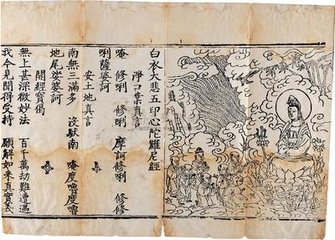 白衣大悲五印心陀羅尼經
淨口業真言
唵 修唎 修唎 摩訶修唎 修修
唎薩婆訶
安土地真言
南無三滿多 沒馱南 唵度嚕度嚕
地尾娑婆訶
開經寶偈
無上甚深微妙法 百千萬劫難遭遇
我今見聞得受持 願解如來真實義